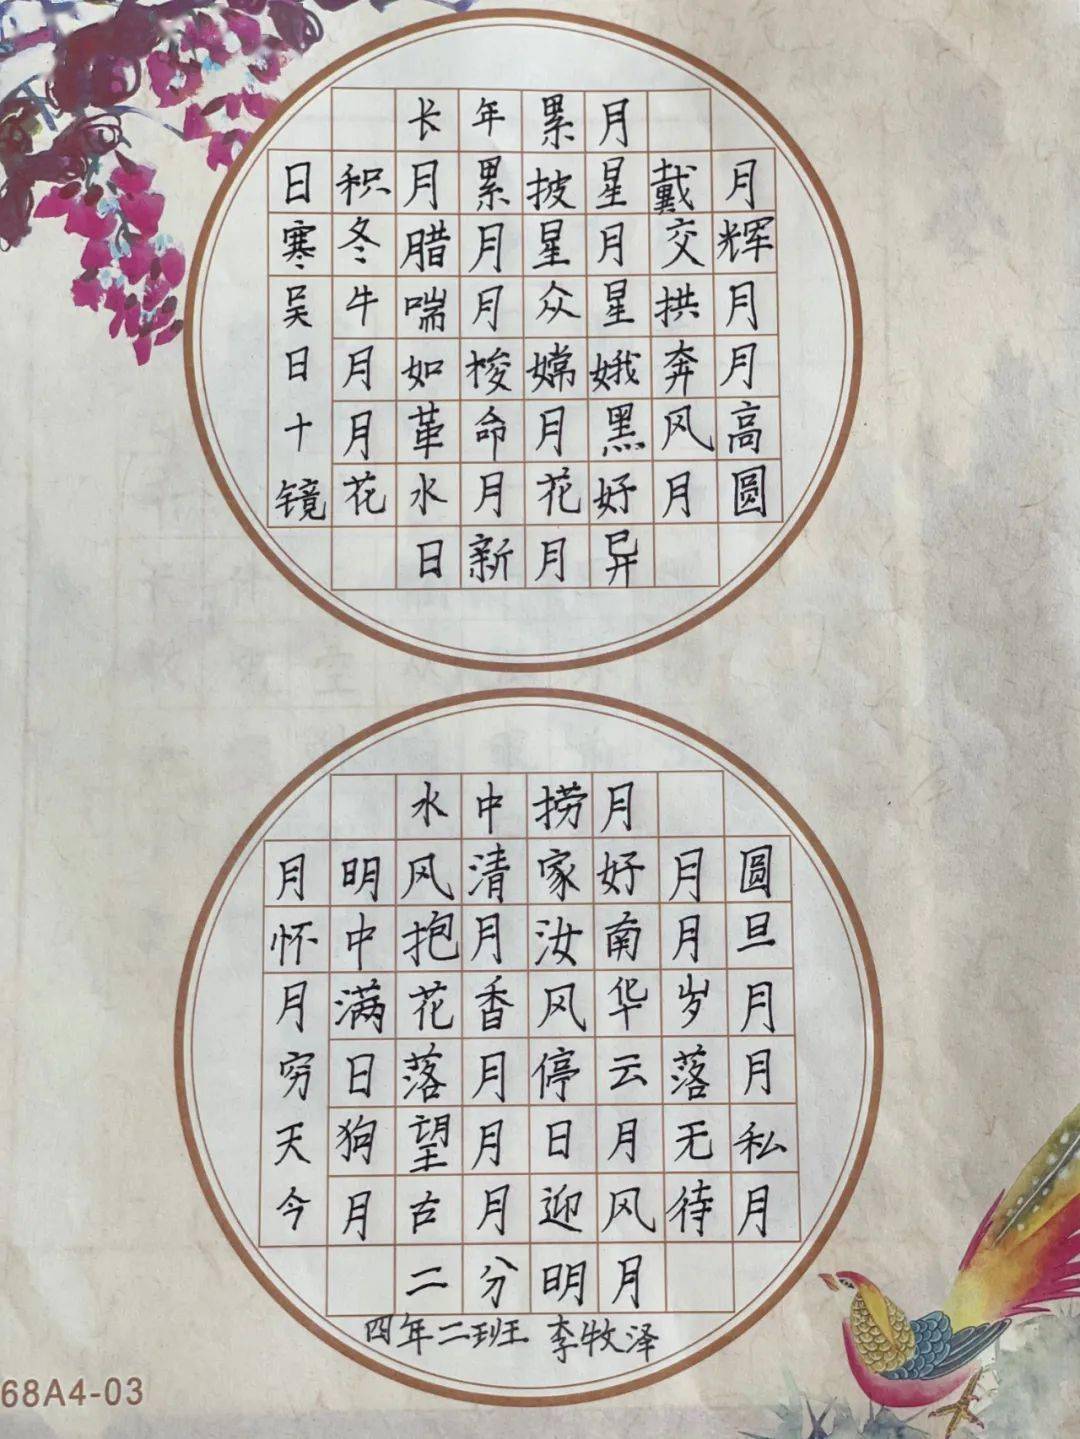 长年累月
日积月累披星戴月
寒冬腊月星月交辉
吴牛喘月众星拱月
日月如梭嫦娥奔月
十月革命月黑风高
镜花水月花好月圆
日新月异
水中捞月
月明风清家好月圆
怀中抱月汝南月旦
月满花香风华岁月
穷日落月停云落月
天狗望月日月无私
今月古月迎风待月
二分明月
四年二班 李牧泽
68A4-03